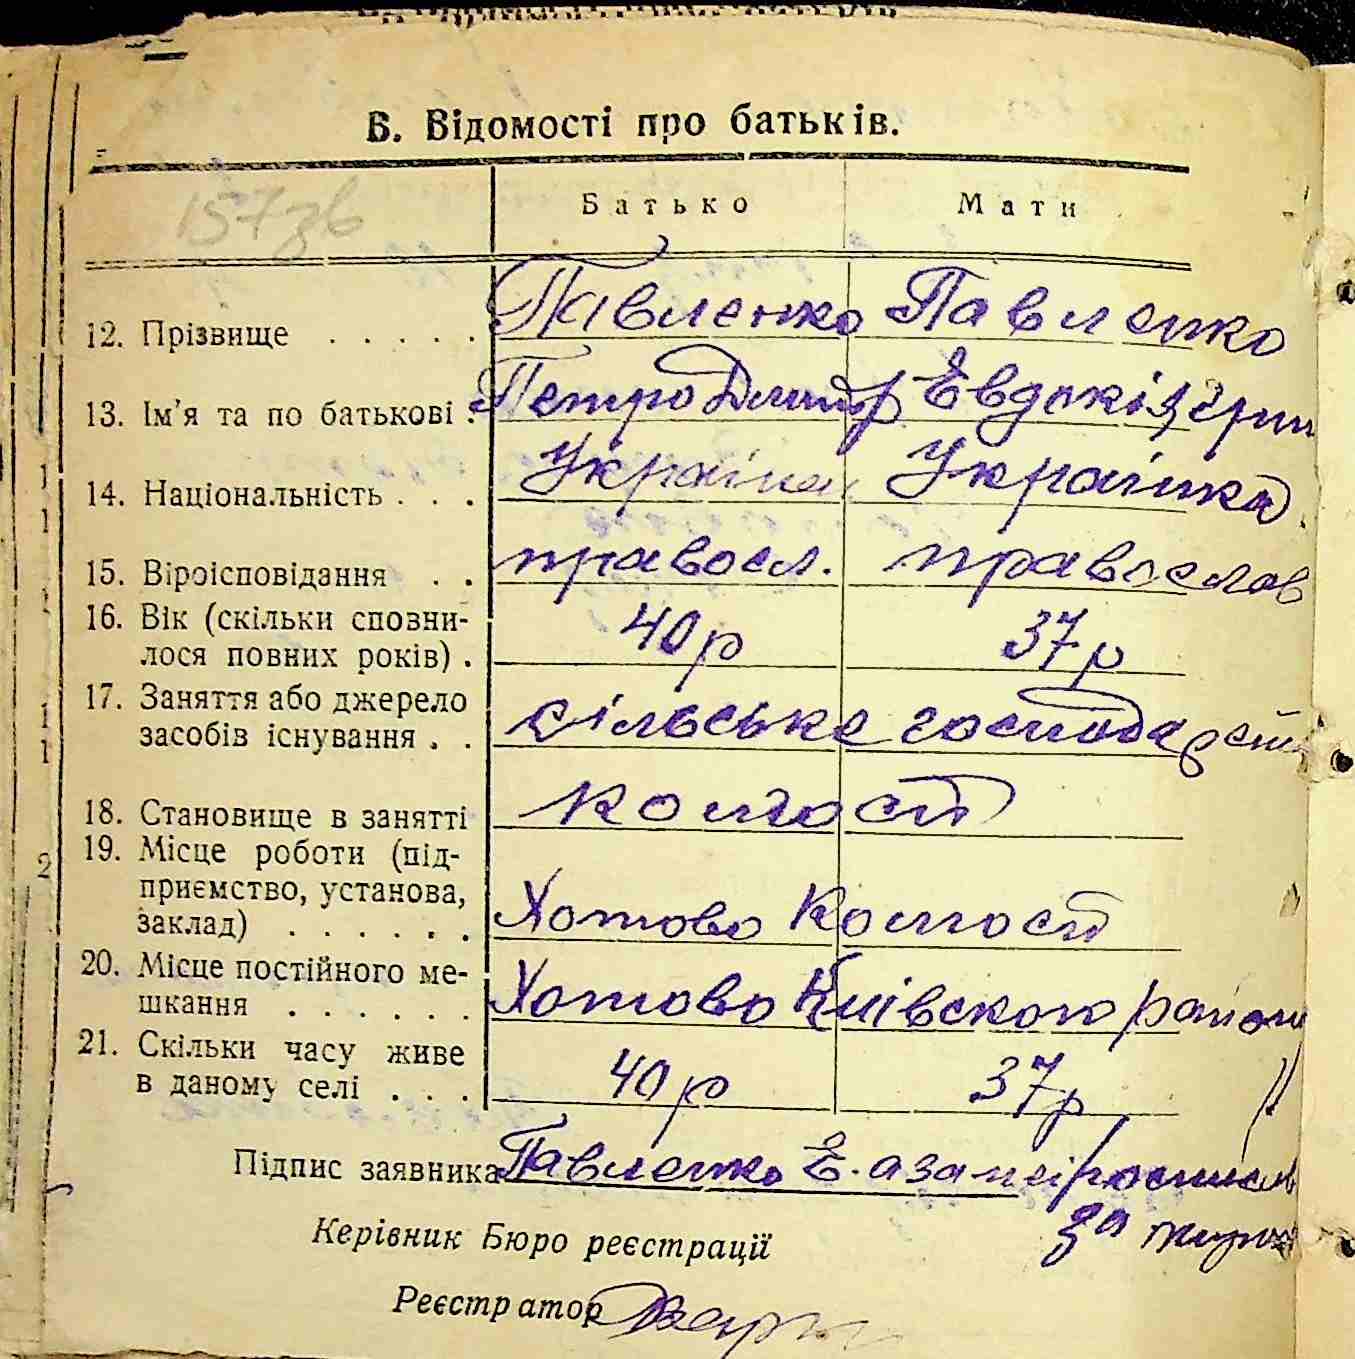 В. Відомості про батьків.
157зв
Батько Мати
12. Прізвище . . . . . Павленко Павленко
13. Ім'я та по батькові . Петро Дмитр Евдокія
14. Національність . . . Україне Українка
15. Віроісповідання . . правосл. православ
16. Вік (скільки сповни-
лося повних років) . 40 р 37 р
17. Заняття або джерело
засобів існування . . сільське господарств
18. Становище в занятті колгосп
19. Місце роботи (під-
приємство, установа,
заклад) . . . . . . Хотово Колгосп
20. Місце постійного ме-
шкання . . . . . . Хотово Київского району
21. Скільки часу живе
в даному селі . . . 40 р 37 р
Підпис заявника Павленко Е. а за неі
за
Керівник Бюро реєстрації
Реєстратор